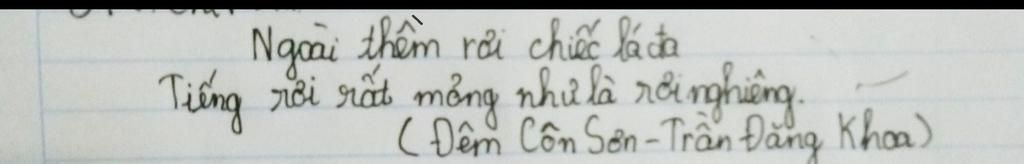 Ngoài thềm rơi chiếc lá đa
Tiếng rơi rất mỏng như là rơi nghiêng.
(Đêm Côn Sơn - Trần Đăng Khoa)